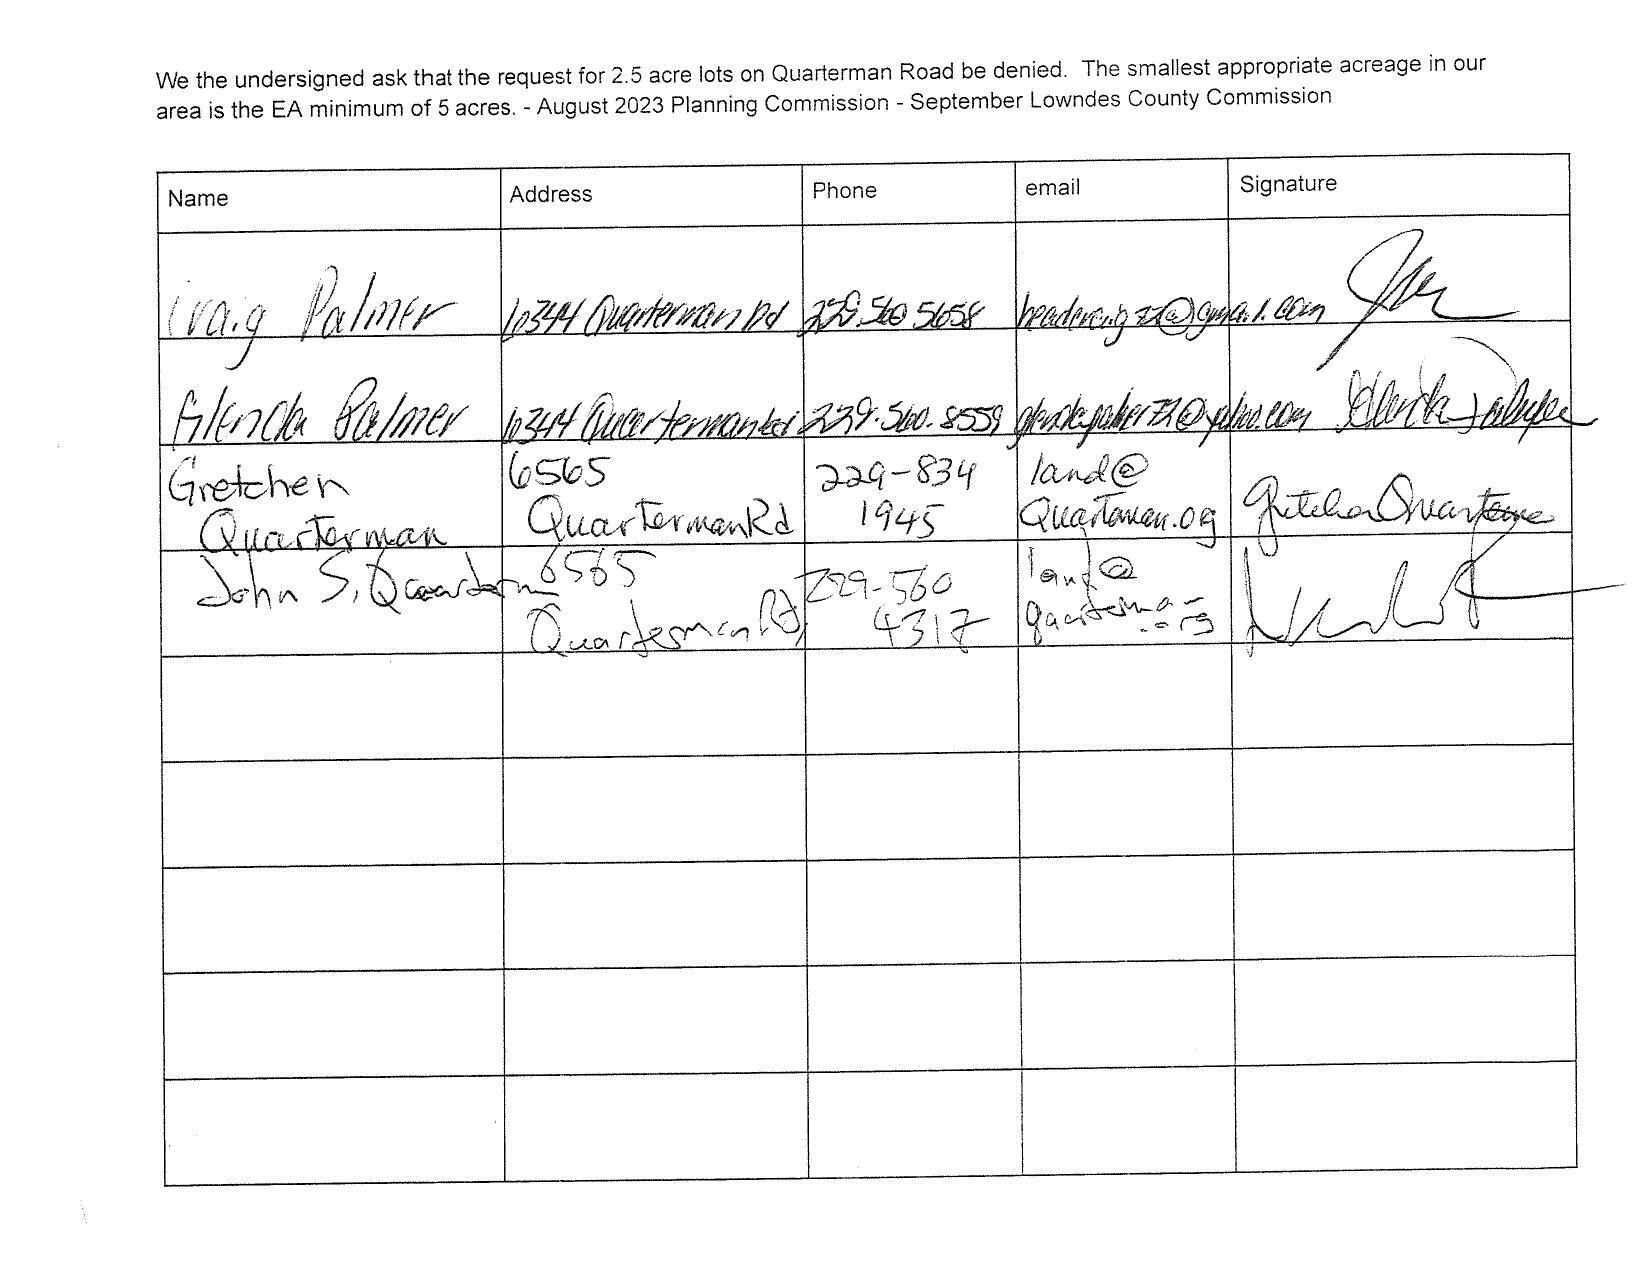 We the undersigned ask that the request for 2.5 acre lots on Quarterman Road be denied. The smallest appropriate acreage in our
area is the EA minimum of 5 acres. - August 2023 Planning Commission - September Lowndes County Commission
Name Address Phone email Signature
Craig Palmer Quarterman Rd 229.560 5658 @gmail.com
Glenda Palmer Quarterman Rd 229.560.8559 @yahoo.com Glenda Palmer
Gretchen 6565 229-834 land@
Quarterman Quarterman Rd 1945 Quarterman.org Gretchen Quarterman
John S. Quarterman 6565 229-560 land@
Quarterman Rd, 4317 quarterman
.org